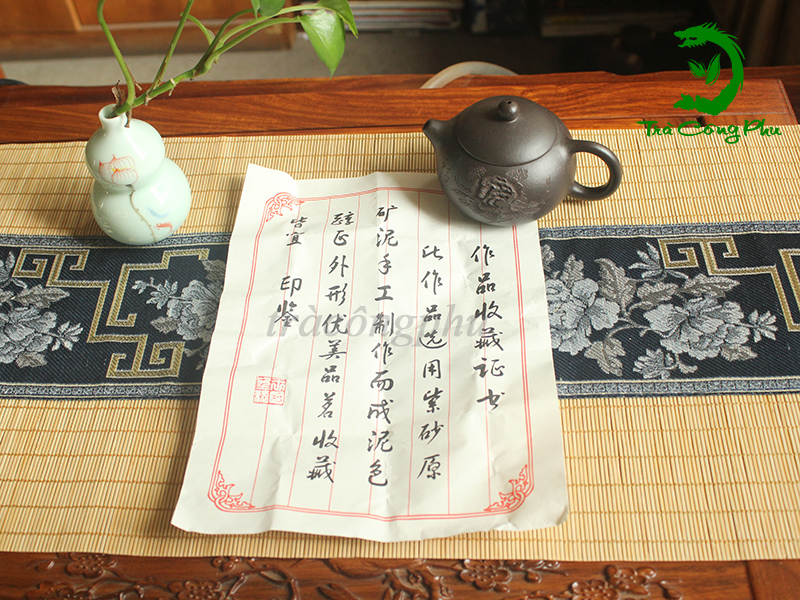 作品收藏证书
此作品选用紫砂原
矿泥手工制作而成泥色
醇正外形优美品茗收藏
皆宜
印鉴
Trà Công Phu
tràcôngphu